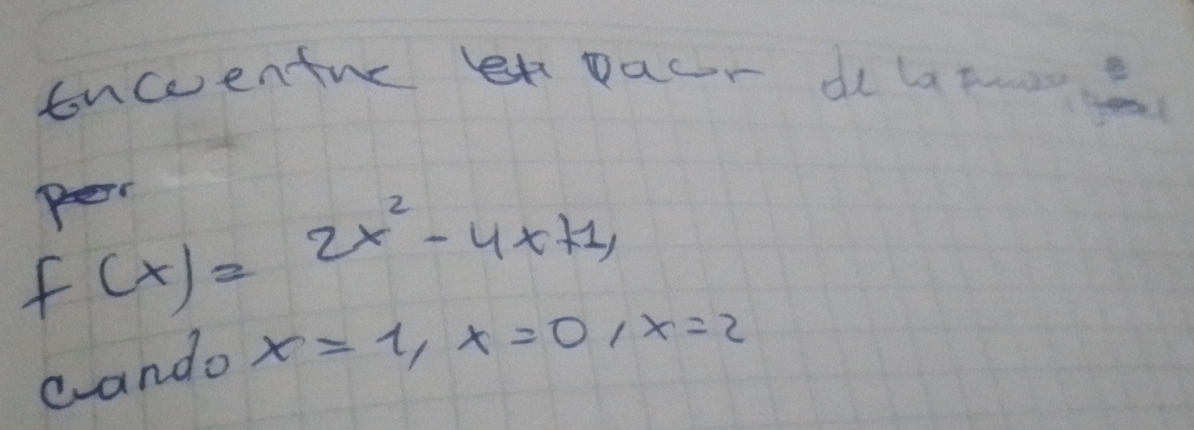 Encuentre el valor de la
por
f(x) = 2x² - 4x+1,
cuando x = 1, x = 0, x = 2